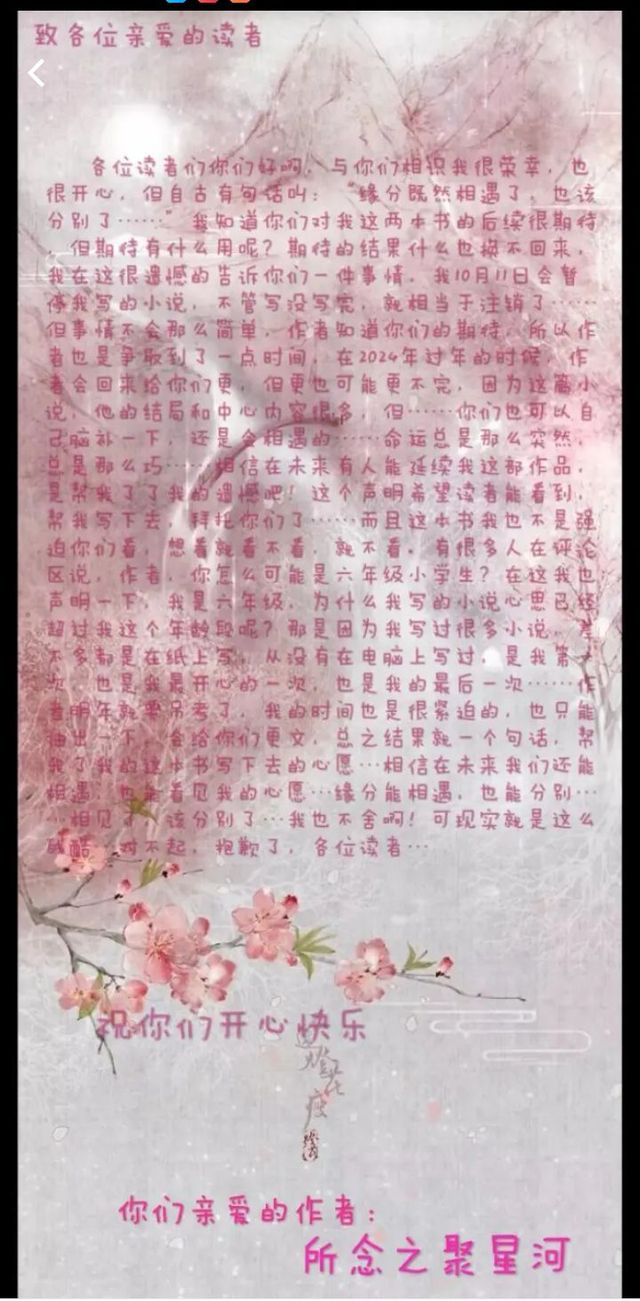 致各位亲爱的读者
各位读者们你们好啊，与你们相识我很荣幸，也
很开心，但自古有句话叫：“缘分既然相遇了，也该
分别了……”我知道你们对我这两本书的后续很期待
但期待有什么用呢？期待的结果什么也换不回来，
我在这很遗憾的告诉你们一件事情，我10月11日会暂
停我写的小说，不管写没写完，就相当于注销了……
但事情不会那么简单，作者知道你们的期待，所以作
者也是争取到了一点时间，在2024年过年的时候，作
者会回来给你们更，但更也可能更不完，因为这篇小
说，他的结局和中心内容很多，但……你们也可以自
己脑补一下，还是会相遇的……命运总是那么突然，
总是那么巧……相信在未来有人能延续我这部作品，
是帮我了了我的遗憾吧！这个声明希望读者能看到，
帮我写下去，拜托你们了……而且这本书我也不是强
迫你们看，想看就看不看，就不看。有很多人在评论
区说，作者，你怎么可能是六年级小学生？在这我也
声明一下，我是六年级，为什么我写的小说心思已经
超过我这个年龄段呢？那是因为我写过很多小说，差
不多都是在纸上写，从没有在电脑上写过，是我第一
次，也是我最开心的一次，也是我的最后一次……作
者明年就要吊考了，我的时间也是很紧迫的，也只能
抽出一下，会给你们更文，总之结果就一个句话，帮
我了我的这本书写下去的心愿…相信在未来我们还能
相遇，也能看见我的心愿…缘分能相遇，也能分别…
…相见了，该分别了…我也不舍啊！可现实就是这么
残酷，对不起，抱歉了，各位读者…
祝你们开心快乐
你们亲爱的作者：
所念之聚星河